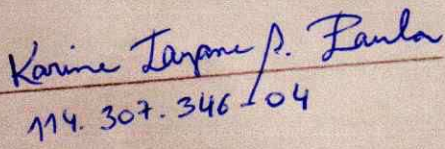 Karine Tayane S. Paula
114.307.346-04